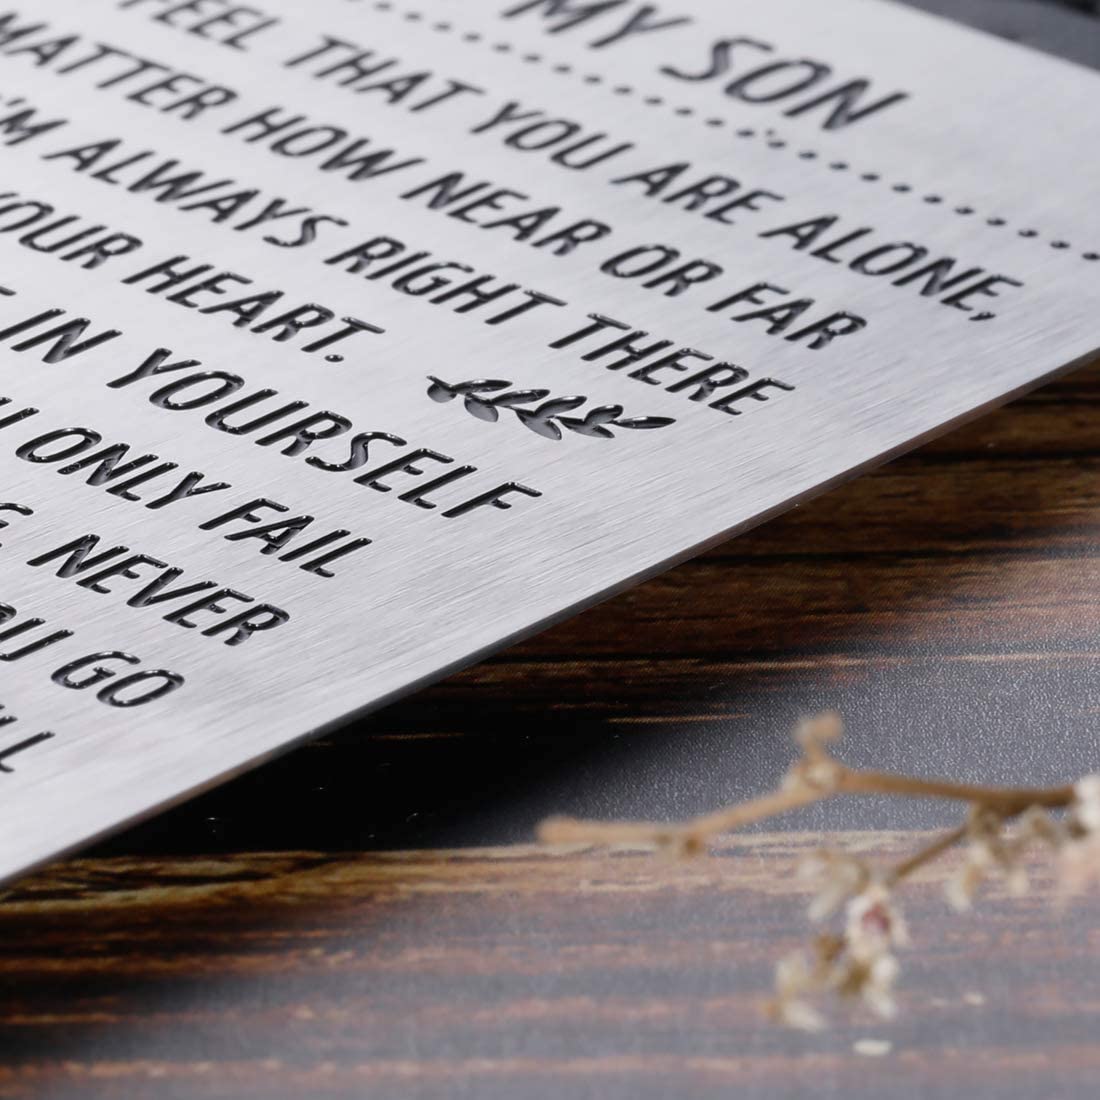 MY SON
FEEL THAT YOU ARE ALONE,
MATTER HOW NEAR OR FAR
I'M ALWAYS RIGHT THERE
YOUR HEART.
IN YOURSELF
ONLY FAIL
NEVER
YOU GO